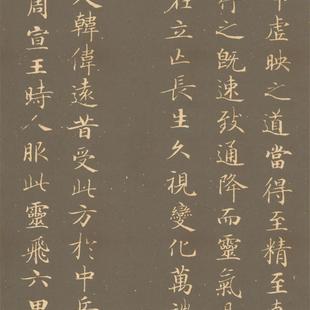 虛映之道當得至精至
行之既速致通降而靈氣
在立亡長生久視變化萬
人韓偉遠昔受此方於中岳
周宣王時人服此靈飛六甲